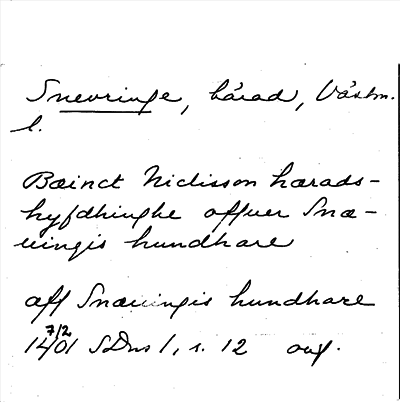 Snevringe, härad, Västm.
l.
Bæinct Niclisson hærads-
hyfdhinghe offuer Snæ-
uingis hundhare
aff Snæuingis hundhare
14 7/2 01 SDns 1, s. 12 avf.